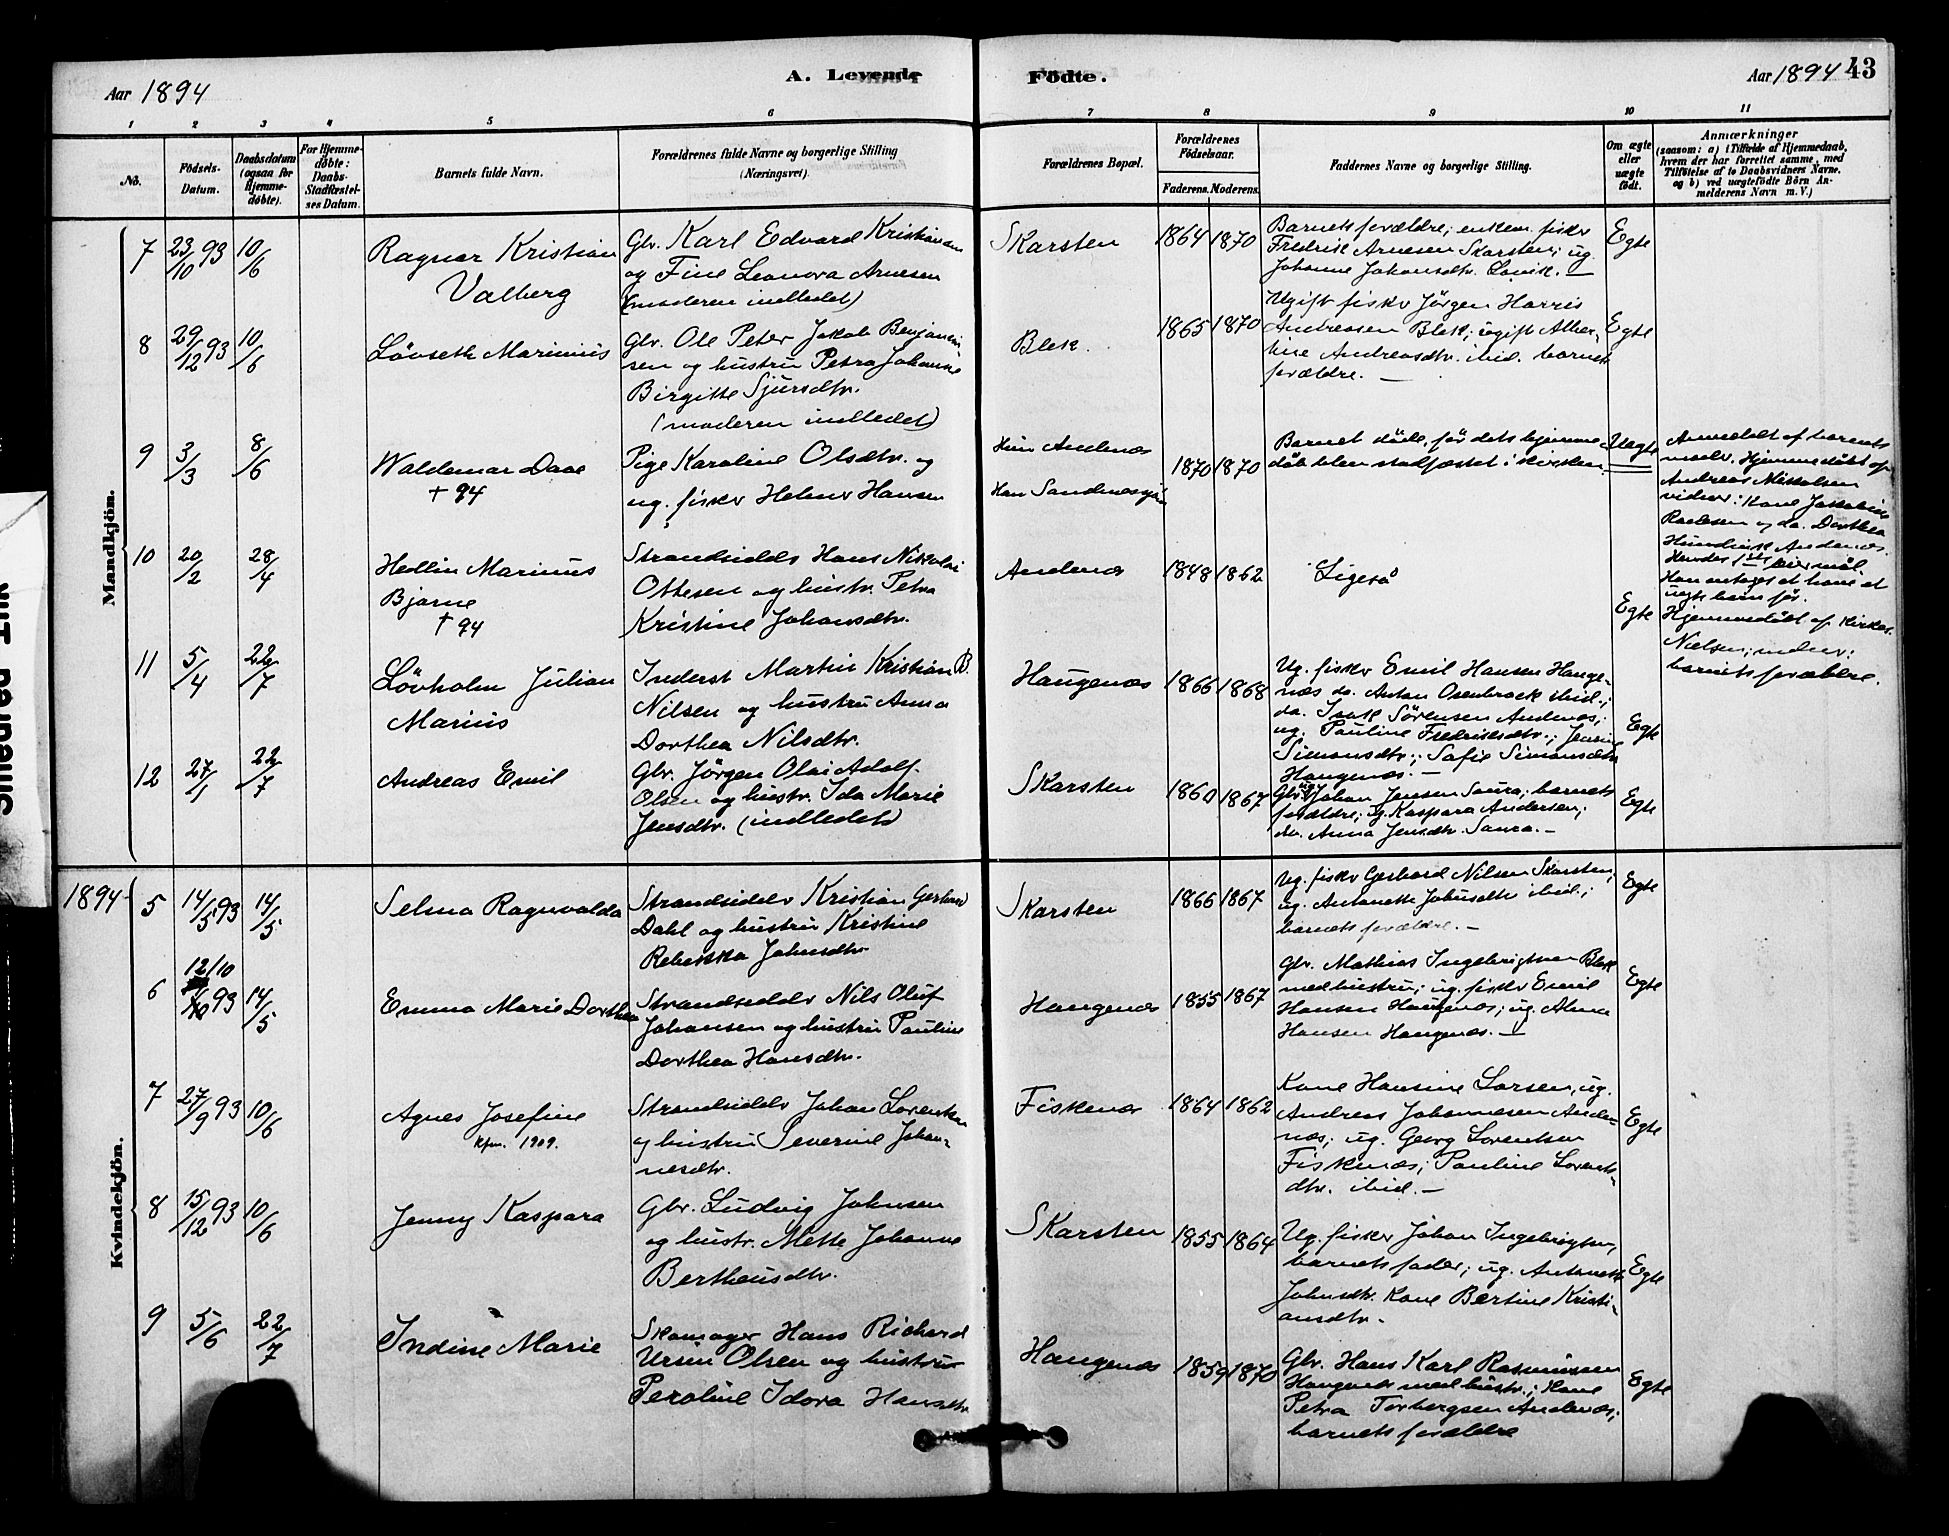 Aar 1894
A. Levende Födte.
Aar 1894
43
1 2 3 4 5 6 7 8 9 10 11
No.
Födsels-Datum.
Daabsdatum (ogsaa for Hjemmedöbte).
For Hjemmedöbte: Daabs-Stadfæstelses Datum.
Barnets fulde Navn.
Forældrenes fulde Navne og borgerlige Stilling (Næringsvei).
Forældrenes Bopæl.
Forældrenes Födselsaar.
Faderens. Moderens.
Faddernes Navne og borgerlige Stilling.
Om ægte eller uægte födt.
Anmærkninger
(saasom: a) i Tilfælde af Hjemmedaab,
hvem der har forrettet samme, med
Tilföielse af to Daabsvidners Navne,
og b) ved uægtefödte Börn Anmelderens Navn m. V.)
Mandkjön.
7 23/10 93 10/6
Ragnar Kristian
Valberg
Gbr. Karl Edvard Kristiansen
og Fine Leonora Arnesen
(moderen indledet)
Skarsten
1864 1870
Barnets forældre; enkem. fisker
Fredrik Arnesen Skarsten; ug.
Johanne Johansdtr.
Egte
8 29/12 93 10/6
Lövseth Marinius
Gbr. Ole Peter Jakob Benjamin-
sen og hustru Petra Johanne
Birgitte Sjursdtr.
(moderen indledet)
Blek.
1865 1870
Ugift fisker Jörgen Harris
Andreassen Blek; ugift Alber-
tine Andreasdtr. ibid. barnets
forældre. —
Egte
9 3/3 8/6
Waldemar Daae
+ 94
Pige Karoline Olsdtr. og
ug. fisker Helmer Hansen
Hun Andenæs
Han
1870 1870
Barnet döde, för dets hjemme-
dåb blev stadfæstet i kirken.
Uegte
Anmeldt af barnets
moder. Hjemmedöbt af
Andreas Nikolaisen
vidner: Kone
og do. Dorthea
Andenæs.
Hendes 1ste leiermål.
Han antages at have et
uegte barn för.
10 20/2 28/4
Hedlin Marinus
Bjarne
+ 94
Strandsidder Hans Nikolai
Ottesen og hustr. Petra
Kristine Johansdtr.
Andenæs
1848 1862
Ligeså
Egte
Hjemmedöbt af kirkes.
Nielsen; vidner:
barnets forældre.
11 5/4 22/7
Lövholm Julian
Marius
Inderst Martin Kristian B.
Nilsen og hustru Anna
Dorthea Nilsdtr.
Haugenæs
1866 1868
Ug. fisker Emil Hansen Hauge-
næs do. Anton Osenbrock ibid.;
do. Isak Sörensen Andenæs;
ug. Pauline Fredriksdtr.; Jensine
Simonsdtr.; Sofie Simonsdtr.
Haugenæs. —
Egte
12 27/1 22/7
Andreas Emil
Gbr. Jörgen Olai Adolf
Olsen og hustr. Ida Marie
Jensdtr. (indledet)
Skarsten
1860 1867
Gbr. Johan Jensen Saura; barnets
forældre; g. Kaspara Andersen;
do. Anna Jensdtr. Saura. —
Egte
Kvindekjön.
1894
5 14/5 93 14/5
Selma Ragnvalda
Strandsidder Kristian Gerhard
Dahl og hustru Kristine
Rebekka Johnsdtr.
Skarsten
1866 1867
Ug. fisker Gerhard Nilsen Skarsten;
ug. Antonette Johnsdtr. ibid.;
barnets forældre. —
Egte
6 12/10 93 14/5
Emma Marie Dorthea
Strandsidder Nils Oluf
Johansen og hustru Pauline
Dorthea Hansdtr.
Haugenæs
1855 1867
Gbr. Mathias Ingebrigtsen Blek
med hustru; ug. fisker Emil
Hansen Haugenæs; ug. Alma
Hansen Haugenæs. —
Egte
7 27/9 93 10/6
Agnes Josefine
Kfm. 1909.
Strandsidder Johan Lorentsen
og hustru Severine Johan-
nesdtr.
Fiskenæs
1864 1862
Kone Hansine Larsen, ug.
Andreas Johannesen Ande-
næs; ug. Georg Lorentsen
Fiskenæs; Pauline Lorents-
dtr. ibid. —
Egte
8 15/12 93 10/6
Jenny Kaspara
Gbr. Ludvig Johnsen
og hustr. Mette Johanne
Bertheusdtr.
Skarsten
1855 1864
Ug. fisker Johan Ingebrigtsen,
barnets fader; ug. Antonette
Johnsdtr. Kone Bertine Kristi-
ansdtr.
Egte
9 5/6 22/7
Indine Marie
Skomager Hans Richard
Ursin Olsen og hustru
Peroline Idora Hansdtr.
Haugenæs
1859 1870
Gbr. Hans Karl Rasmussen
Haugenæs med hustr.; Kone
Petra Torbergsen Andenæs;
barnets forældre
Egte